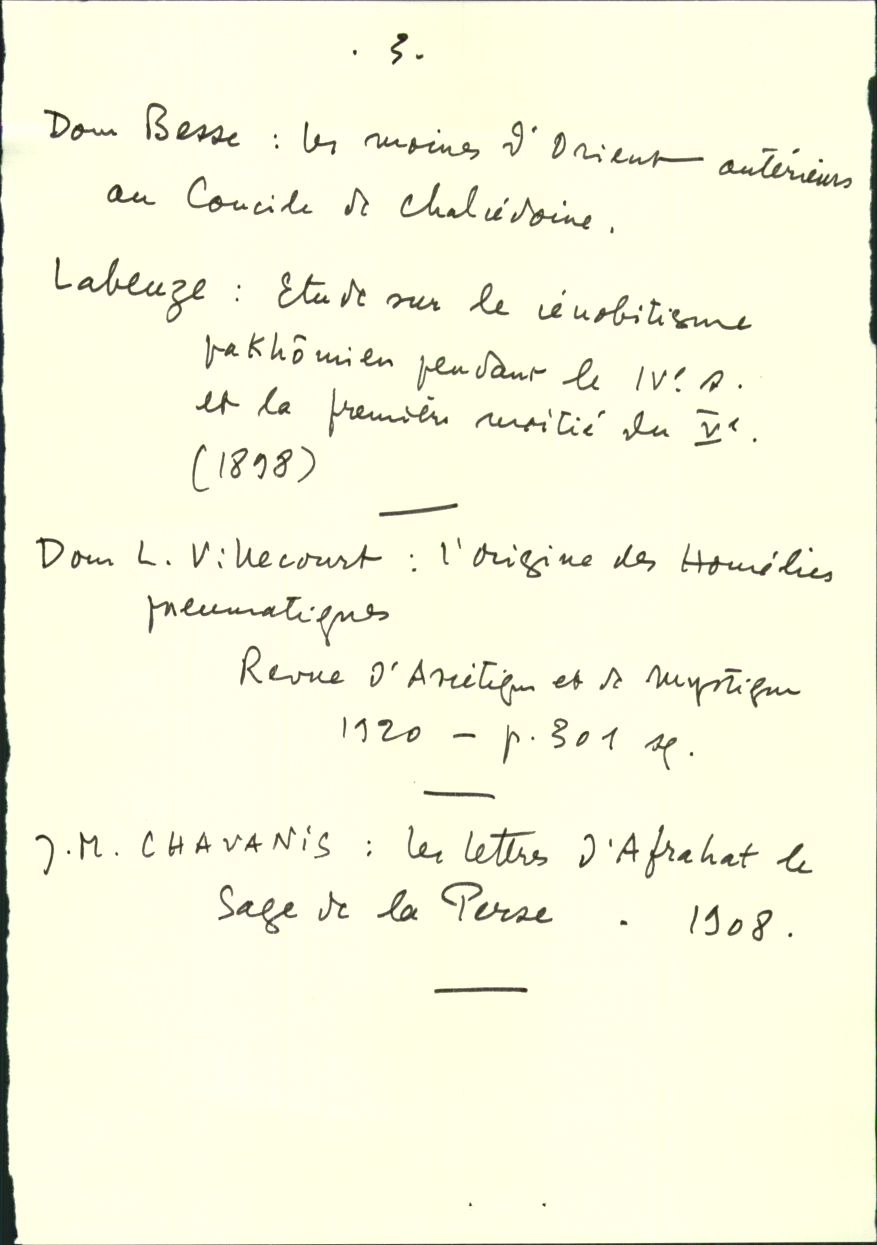 . 3.
Dom Besse : les moines d'Orient antérieurs
au Concile de Chalcédoine.
Labeuze : Etude sur le cénobitisme
pakhômien pendant le IVe s.
et la première moitié du Ve.
(1898)
Dom L. Villecourt : l'origine des Homélies
pneumatiques
Revue d'Ascétique et de Mystique
1920 — p. 301 sq.
J.M. CHAVANIS : les lettres d'Afrahat le
Sage de la Perse . 1908.